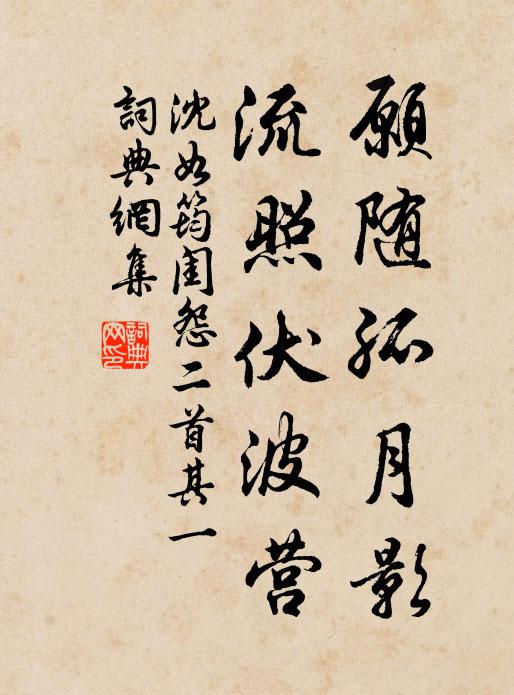 願随孤月影
流照伏波营
沈如筠闺怨二首其一
詞典網集
詞典網印